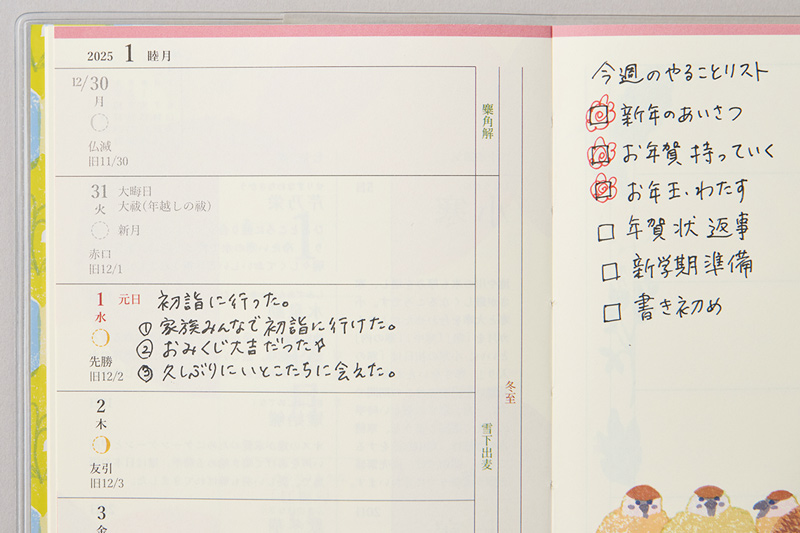 2025 1 睦月
12/30
月
仏滅
旧11/30
31 大晦日
火 大祓(年越しの祓)
新月
赤口
旧12/1
1 元日 初詣に行った。
水 ① 家族みんなで初詣に行けた。
② おみくじ大吉だった☆
先勝 ③ 久しぶりにいとこたちに会えた。
旧12/2
2
木
友引
旧12/3
3
金
麋角解
冬至
雪下出麦
今週のやることリスト
新年のあいさつ
お年賀 持っていく
お年玉、わたす
年賀状 返事
新学期準備
書き初め